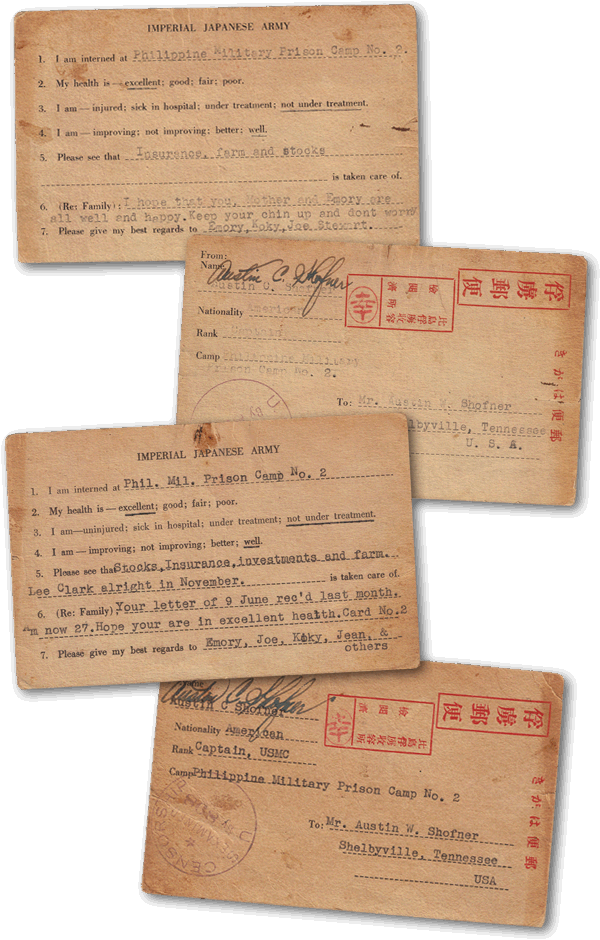 IMPERIAL JAPANESE ARMY
1. I am interned at Philippine Military Prison Camp No. 2.
2. My health is — excellent; good; fair; poor.
3. I am — injured; sick in hospital; under treatment; not under treatment.
4. I am — improving; not improving; better; well.
5. Please see that Insurance, farm and stocks
is taken care of.
6. (Re: Family); I hope that you, Mother and Emory are
all well and happy.Keep your chin up and dont worry
7. Please give my best regards to Emory,Koky,Joe Stewart.
From:
Name
Austin C. Shofner
Austin C. Shofner
Nationality American
Rank
Camp Philippine Military
Prison Camp No. 2.
To: Mr. Austin W. Shofner
Shelbyville, Tennessee
U. S. A.
俘虜郵便
比島俘虜收容所
檢閲濟
さがは便郵
U
IMPERIAL JAPANESE ARMY
1. I am interned at Phil. Mil. Prison Camp No. 2
2. My health is — excellent; good; fair; poor.
3. I am—uninjured; sick in hospital; under treatment; not under treatment.
4. I am — improving; not improving; better; well.
5. Please see that Stocks,Insurance,investments and farm.
Lee Clark alright in November. is taken care of.
6. (Re: Family); Your letter of 9 June rec'd last month.
I'm now 27.Hope your are in excellent health.Card No.2
7. Please give my best regards to Emory, Joe, Koky, Jean, &
others
Austin C Shofner
Austin C Shofner
Nationality American
Rank Captain, USMC
Camp Philippine Military Prison Camp No. 2
To: Mr. Austin W. Shofner
Shelbyville, Tennessee
USA
俘虜郵便
比島俘虜收容所
檢閲濟
さがは便郵
U
CENSOR
BY